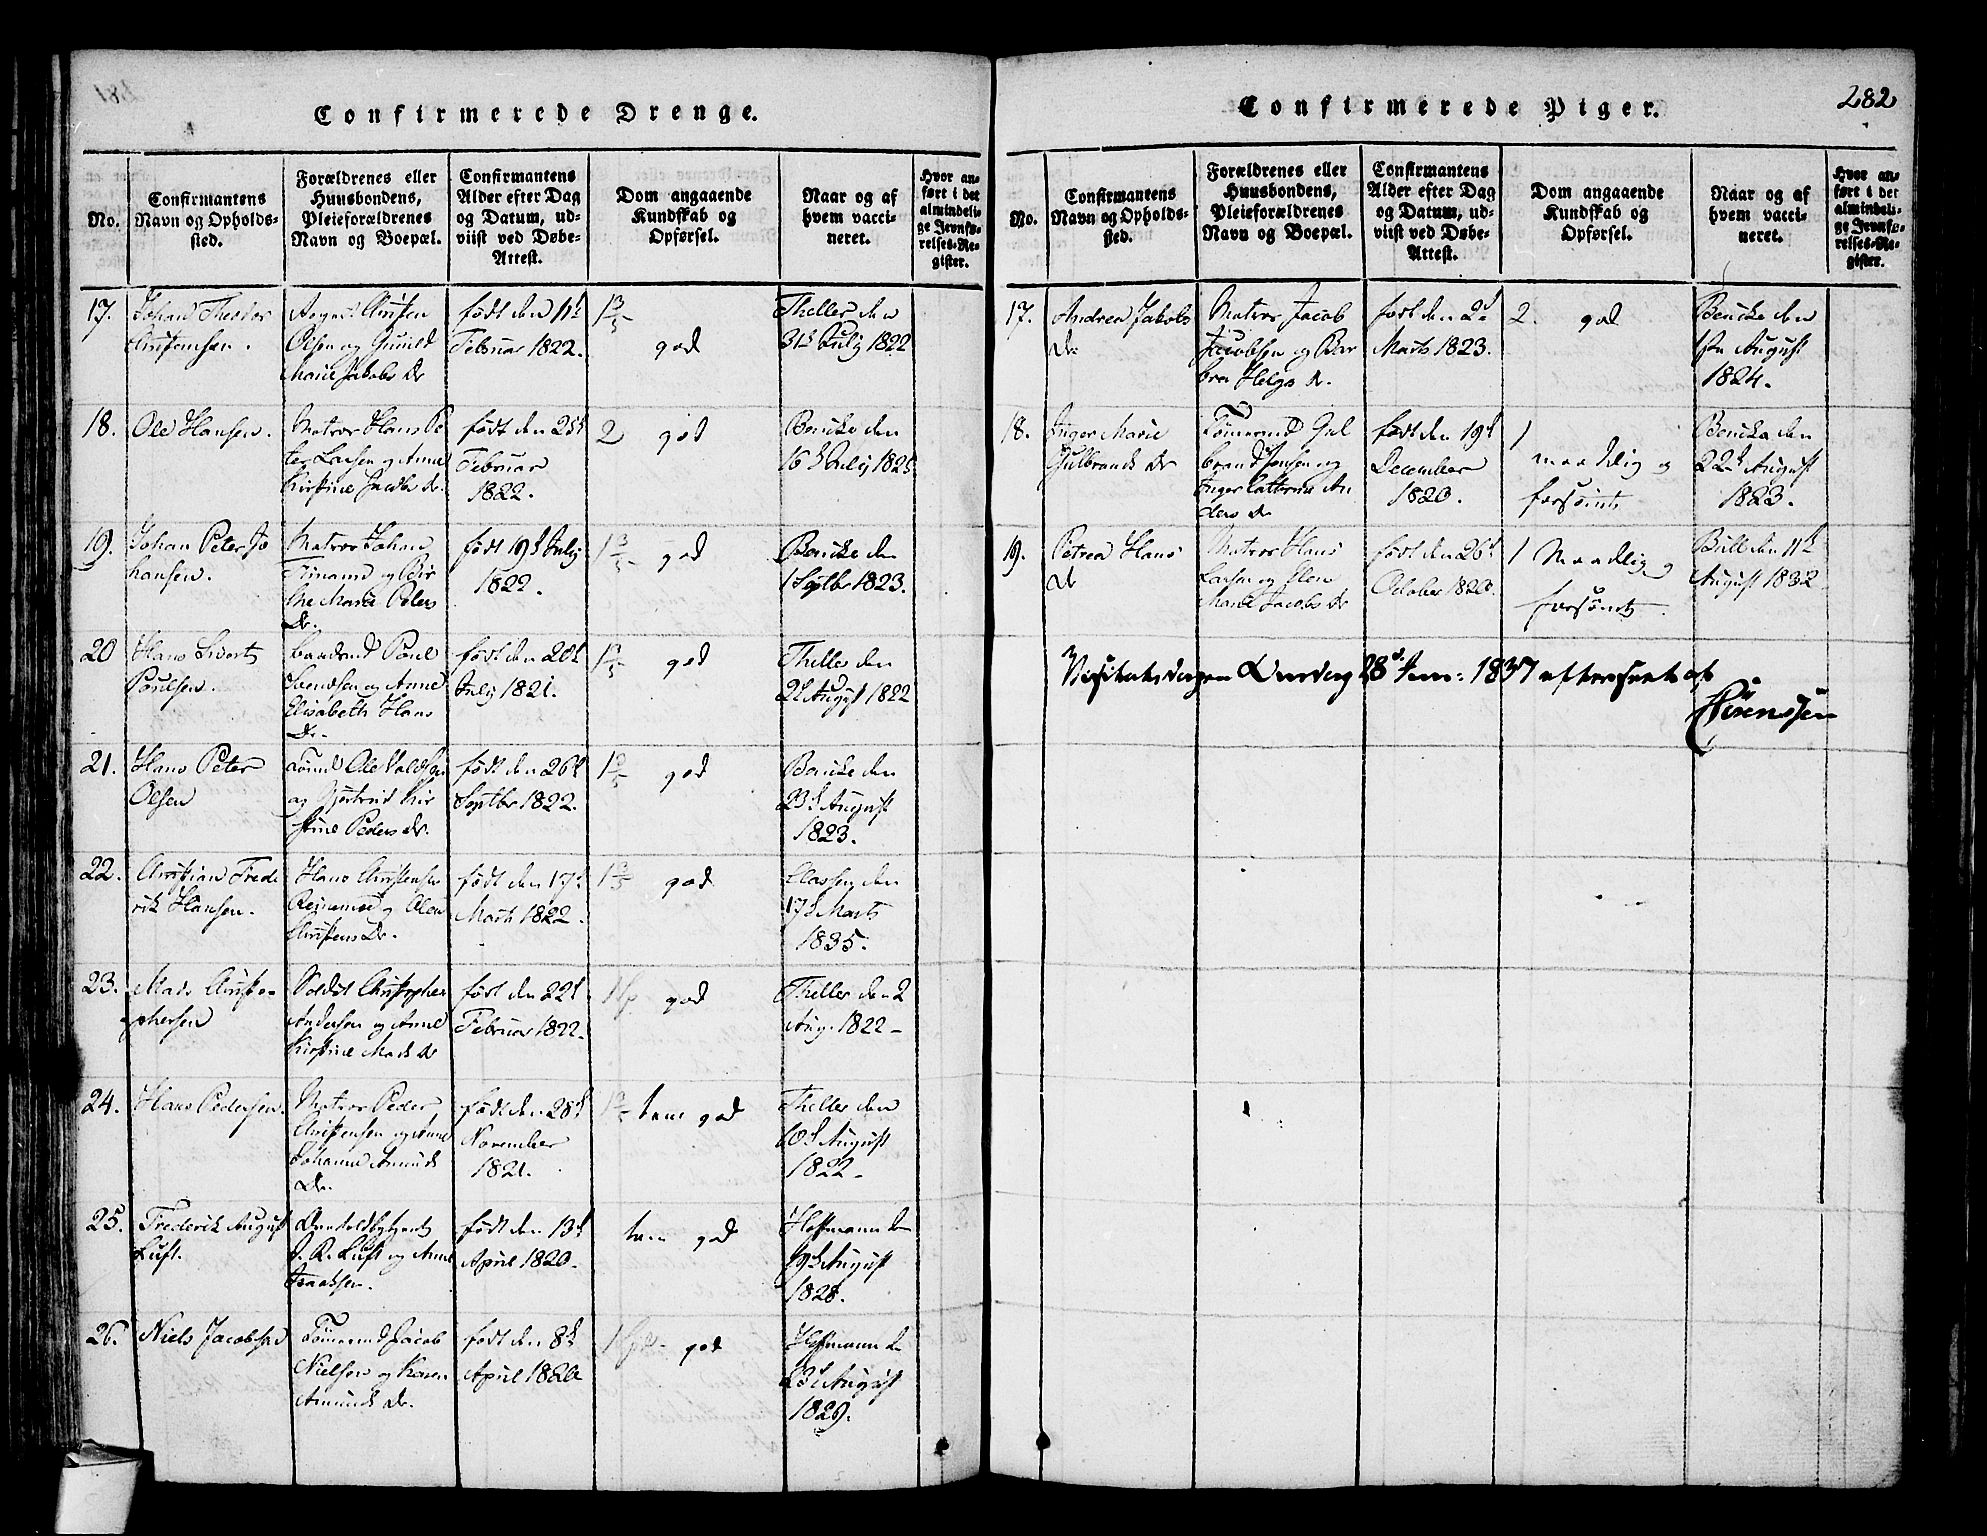 282
Confirmerede Drenge.
No.
Confirmantens
Navn og Opholds-
sted.
Forældrenes eller
Huusbondens,
Pleieforældrenes
Navn og Boepæl.
Confirmantens
Alder efter Dag
og Datum, ud-
viist ved Døbe-
Attest.
Dom angaaende
Kundskab og
Opførsel.
Naar og af
hvem vacci-
neret.
Hvor an-
ført i det
almindeli-
ge Jevnfø-
relses-Re-
gister.
17.
Johan Theodor
Christensen.
Christen
Olsen og Gunild
Marie Jakobs Dr
født den 11te
Februar 1822.
god
Theller den
31te July 1822
18.
Ole Hansen.
Matros Hans Pe
ter Larsen og Anne
Kirstine Jacobs Dr.
født den 25de
Februar
1822.
2 god
Benicke den
16de July 1825
19.
Johan Peter Jo
hansen.
Matros Johan
og Bir
the Marie Peders
Dr.
født 19de July
1822.
god
Benicke den
1 Septbr 1823.
20
Hans Siverts
Poulsen.
Poul
Svendsen og Anne
Elisabeth Hans
Dr.
født den 20de
July 1821.
god
Theller den
2de August 1822
21.
Hans Peter
Olsen
Ole
og Gjertrud Kir
stine Peders Dr.
født den 26de
Septbr 1822.
god
Benicke den
23de August
1823.
22.
Christian Frede
rik Hansen.
Hans Christensen
og Olea
Christens Dr.
født den 17de
Marts 1822.
god
Classen den
17de Marts
1835.
23.
Mads Christo-
phersen
Soldat Christopher
Andersen og Anne
Kirstine Mads Dr
født den 22de
Februar 1822.
god
Theller den 2
Aug. 1822
24.
Hans Pedersen.
Matros Peder
Christensen og Anne
Johanne Amunds
Dr.
født den 28de
November
1821.
god
Theller den
10de August
1822
25.
Frederik August
Luft.
J. R. Luft og Anne
Isaksen.
født den 13de
April 1820.
god
Hoffmann d
19de August
1828.
26.
Niels Jacobsen
Tømmermd Jacob
Nielsen og Karen
Amunds Dr.
født den 8de
April 1820
god
Hoffmann d
23de August
1829.
Confirmerede Piger.
No.
Confirmantens
Navn og Opholds-
sted.
Forældrenes eller
Huusbondens,
Pleieforældrenes
Navn og Boepæl.
Confirmantens
Alder efter Dag
og Datum, ud-
viist ved Døbe-
Attest.
Dom angaaende
Kundskab og
Opførsel.
Naar og af
hvem vacci-
neret.
Hvor an-
ført i det
almindeli-
ge Jevnfø-
relses-Re-
gister.
17.
Andrea Jakobs
Dr.
Matros Jacob
Jacobsen og Bar
bra Helgs Dr.
født den 2d
Marts 1823.
2. god
Benicke den
1ste August
1824.
18.
Inger Marie
Gulbrands Dr
Tømmermd Gul
brand Jensen og
Inger Cathrine An
ders Dr
født den 19de
December
1820.
1
maadelig og
forsømt
Benicke den
22de August
1823.
19.
Petrea Hans
Dr
Matros Hans
Larsen og Elen
Marie Jacobs Dr
født den 26de
October 1820.
1 Maadelig og
forsømt.
Bull den 11te
August 1832
Visitatsdagen Onsdag 28d Jun: 1837 efterseet af
Sørenssen